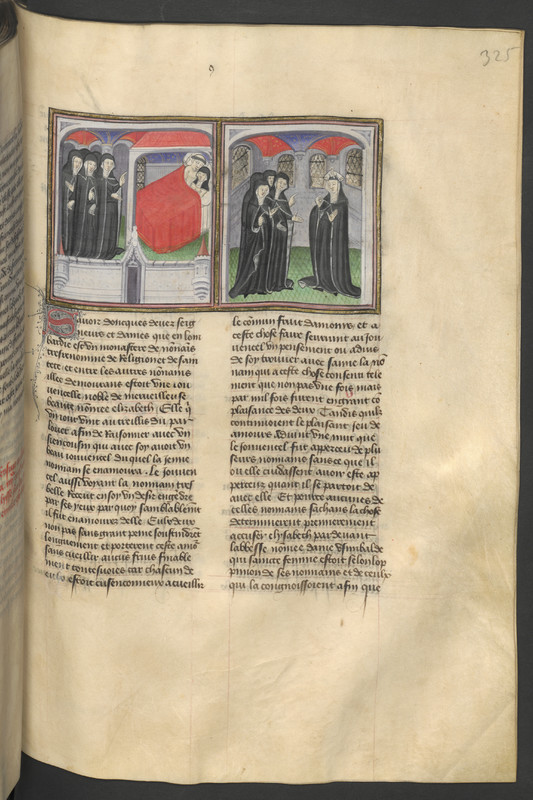 325
Sauoir doncques deuez seig
neurs et dames que en lom
bardie est vn monastere de nonais
tresrenomme de Religion et de sain
tete et entre les autres nonains
illec demourans estoit vne iou
uencelle noble de merueilleuse
beaute nomee elizabeth Elle q
vn iour vint au treillis du par
louer afin de Raisonner auec vn
sien cousin qui auec soy auoit vn
beau iouuencel duquel la jeune
nonnain se enamoura. Le jouuen
cel aussi voyant la nonnain tres
belle Receut en soy vn desir engedre
par ses yeux par quoy samblablemt
il fut enamoure delle Eulx deux
non pas sans grant peine soustindrent
longuement et porterent ceste amo
sans cueillir aucuns fruis finable
ment contesuoies car chascun de
eulx estoit ensoncionneux a cueillir
le comun fruit damours et a
ceste chose faire seruant au jou
uencel vn pensement ou aduis
de soy trouuer auec samie la no
nain qui a ceste chose consenti tele
ment que non pas vne fois mais
par mil fois furent en grant co
plaisance des deux Tandis quilz
continuoient le plaisant jeu de
amours aduint vne nuit que
le jouuencel fut apperceu de plu
seurs nonnains sans ce que il
ou elle cuidassent auoir este ap
perceuz quant il se partoit de
auec elle Et pource aucunes de
celles nonnains sachans la chose
determinerent premierement
accuser elysabeth par deuant
labbesse nomee dame vsimbalde
qui saincte femme estoit selon lop
pinion de ses nonnains et de ceulx
qui la congnoissoient afin que